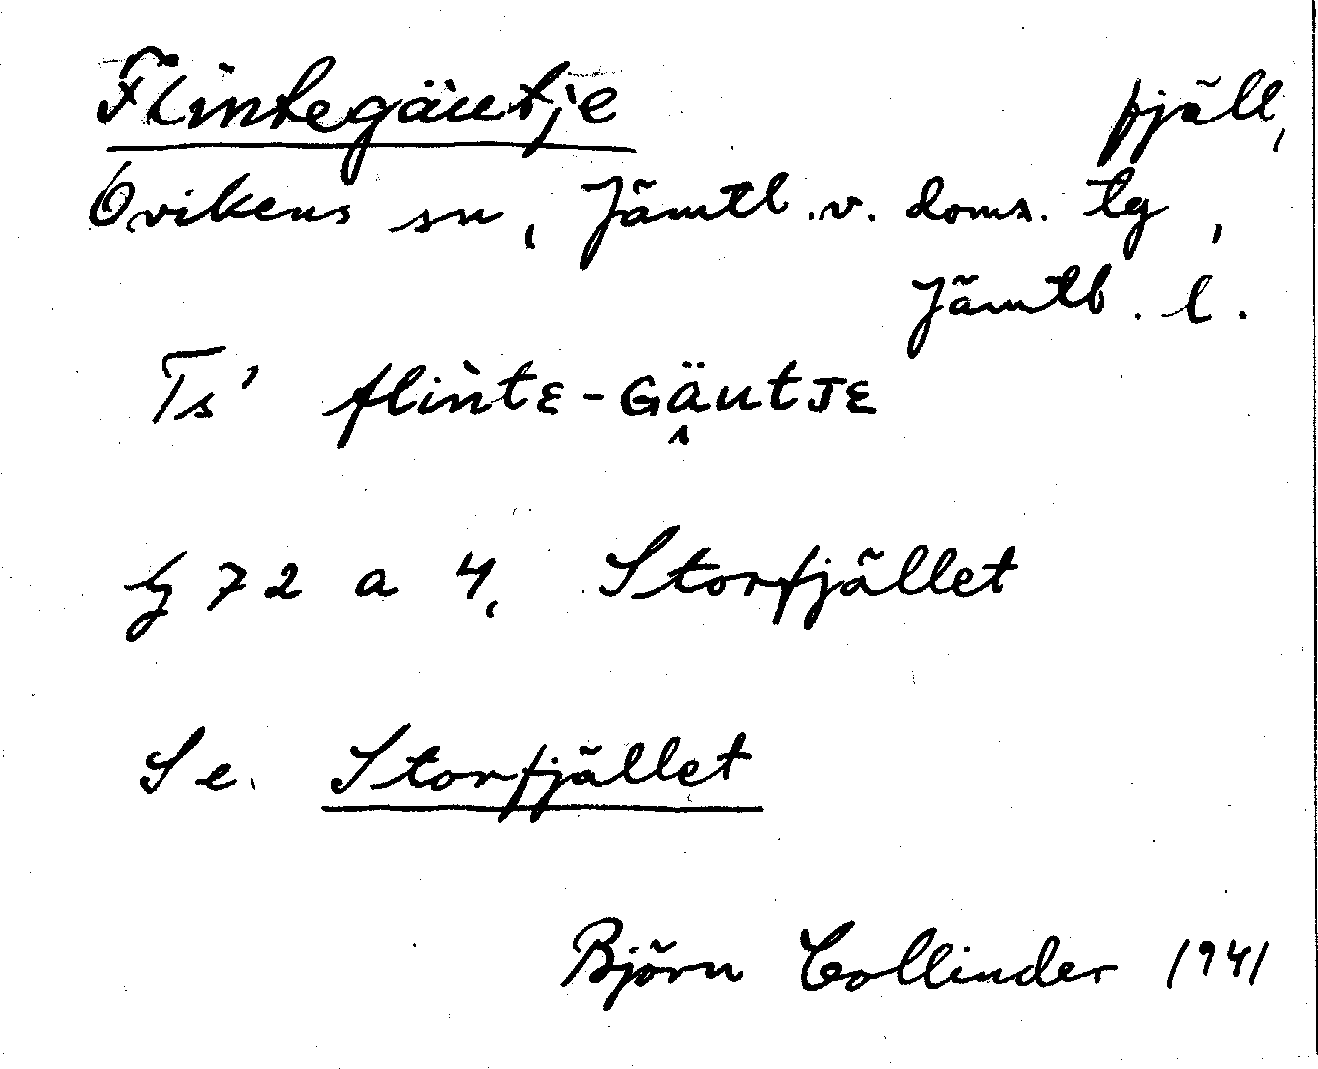 Flintegäutje fjäll,
Ovikens sn, Jämtl. v. doms. tg,
Jämtl. l.
Ts' flìntɛ-Gäutᴊɛ
G 72 a 4, Storfjället
Se. Storfjället
Björn Collinder 1941